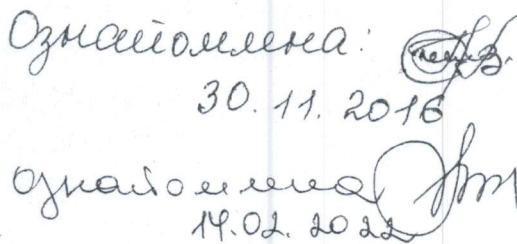 Ознайомлена:
30.11.2016
ознайомлена
14.02.2022